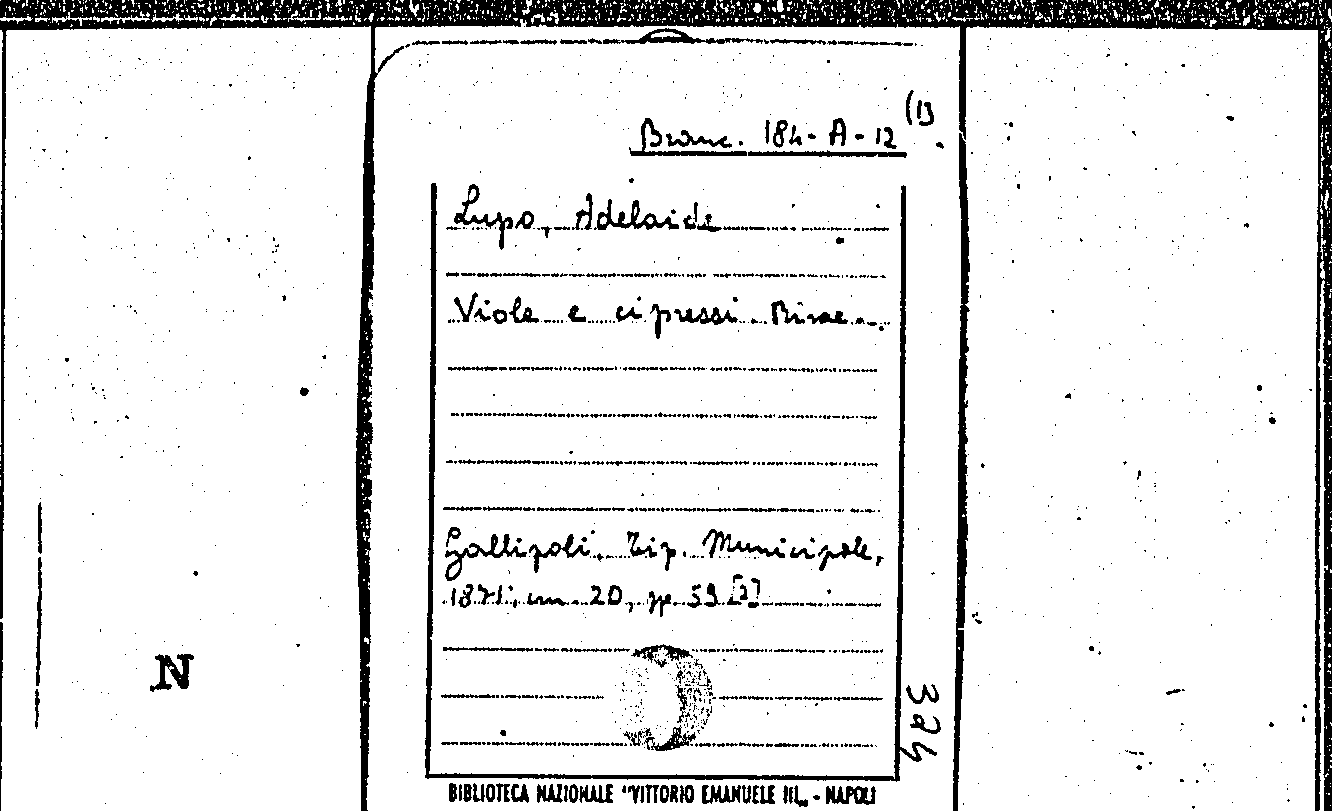 Branc. 184-A-12 (13
Lupo, Adelaide
Viole e cipressi. Rime...
Gallipoli, Tip. Municipale,
1871, cm. 20, pp. 59 [1]
N
324
BIBLIOTECA NAZIONALE "VITTORIO EMANUELE III„ - NAPOLI